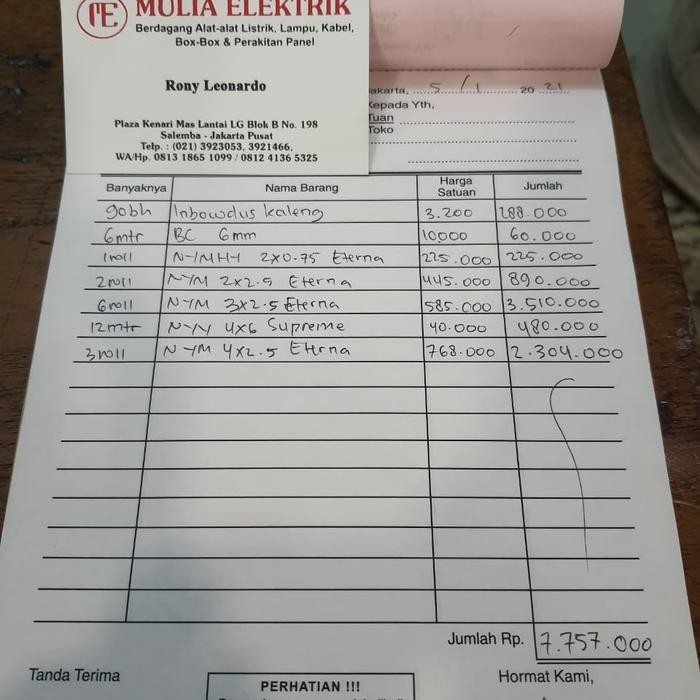 MULIA ELEKTRIK
Berdagang Alat-alat Listrik, Lampu, Kabel,
Box-Box & Perakitan Panel
Rony Leonardo
Plaza Kenari Mas Lantai LG Blok B No. 198
Salemba - Jakarta Pusat
Telp. : (021) 3923053, 3921466,
WA/Hp. 0813 1865 1099 / 0812 4136 5325
akarta, 5/1 20 21
Kepada Yth,
Tuan
Toko
Banyaknya Nama Barang Harga Satuan Jumlah
90bh Inbowdus kaleng 3.200 288.000
6mtr BC 6mm 10000 60.000
1roll NYMHY 2x0.75 Eterna 225.000 225.000
2roll NYM 2x2.5 Eterna 445.000 890.000
6roll NYM 3x2.5 Eterna 585.000 3.510.000
12mtr NYY 4x6 Supreme 40.000 480.000
3roll NYM 4x2.5 Eterna 768.000 2.304.000
Jumlah Rp. 7.757.000
Tanda Terima
PERHATIAN !!!
Hormat Kami,